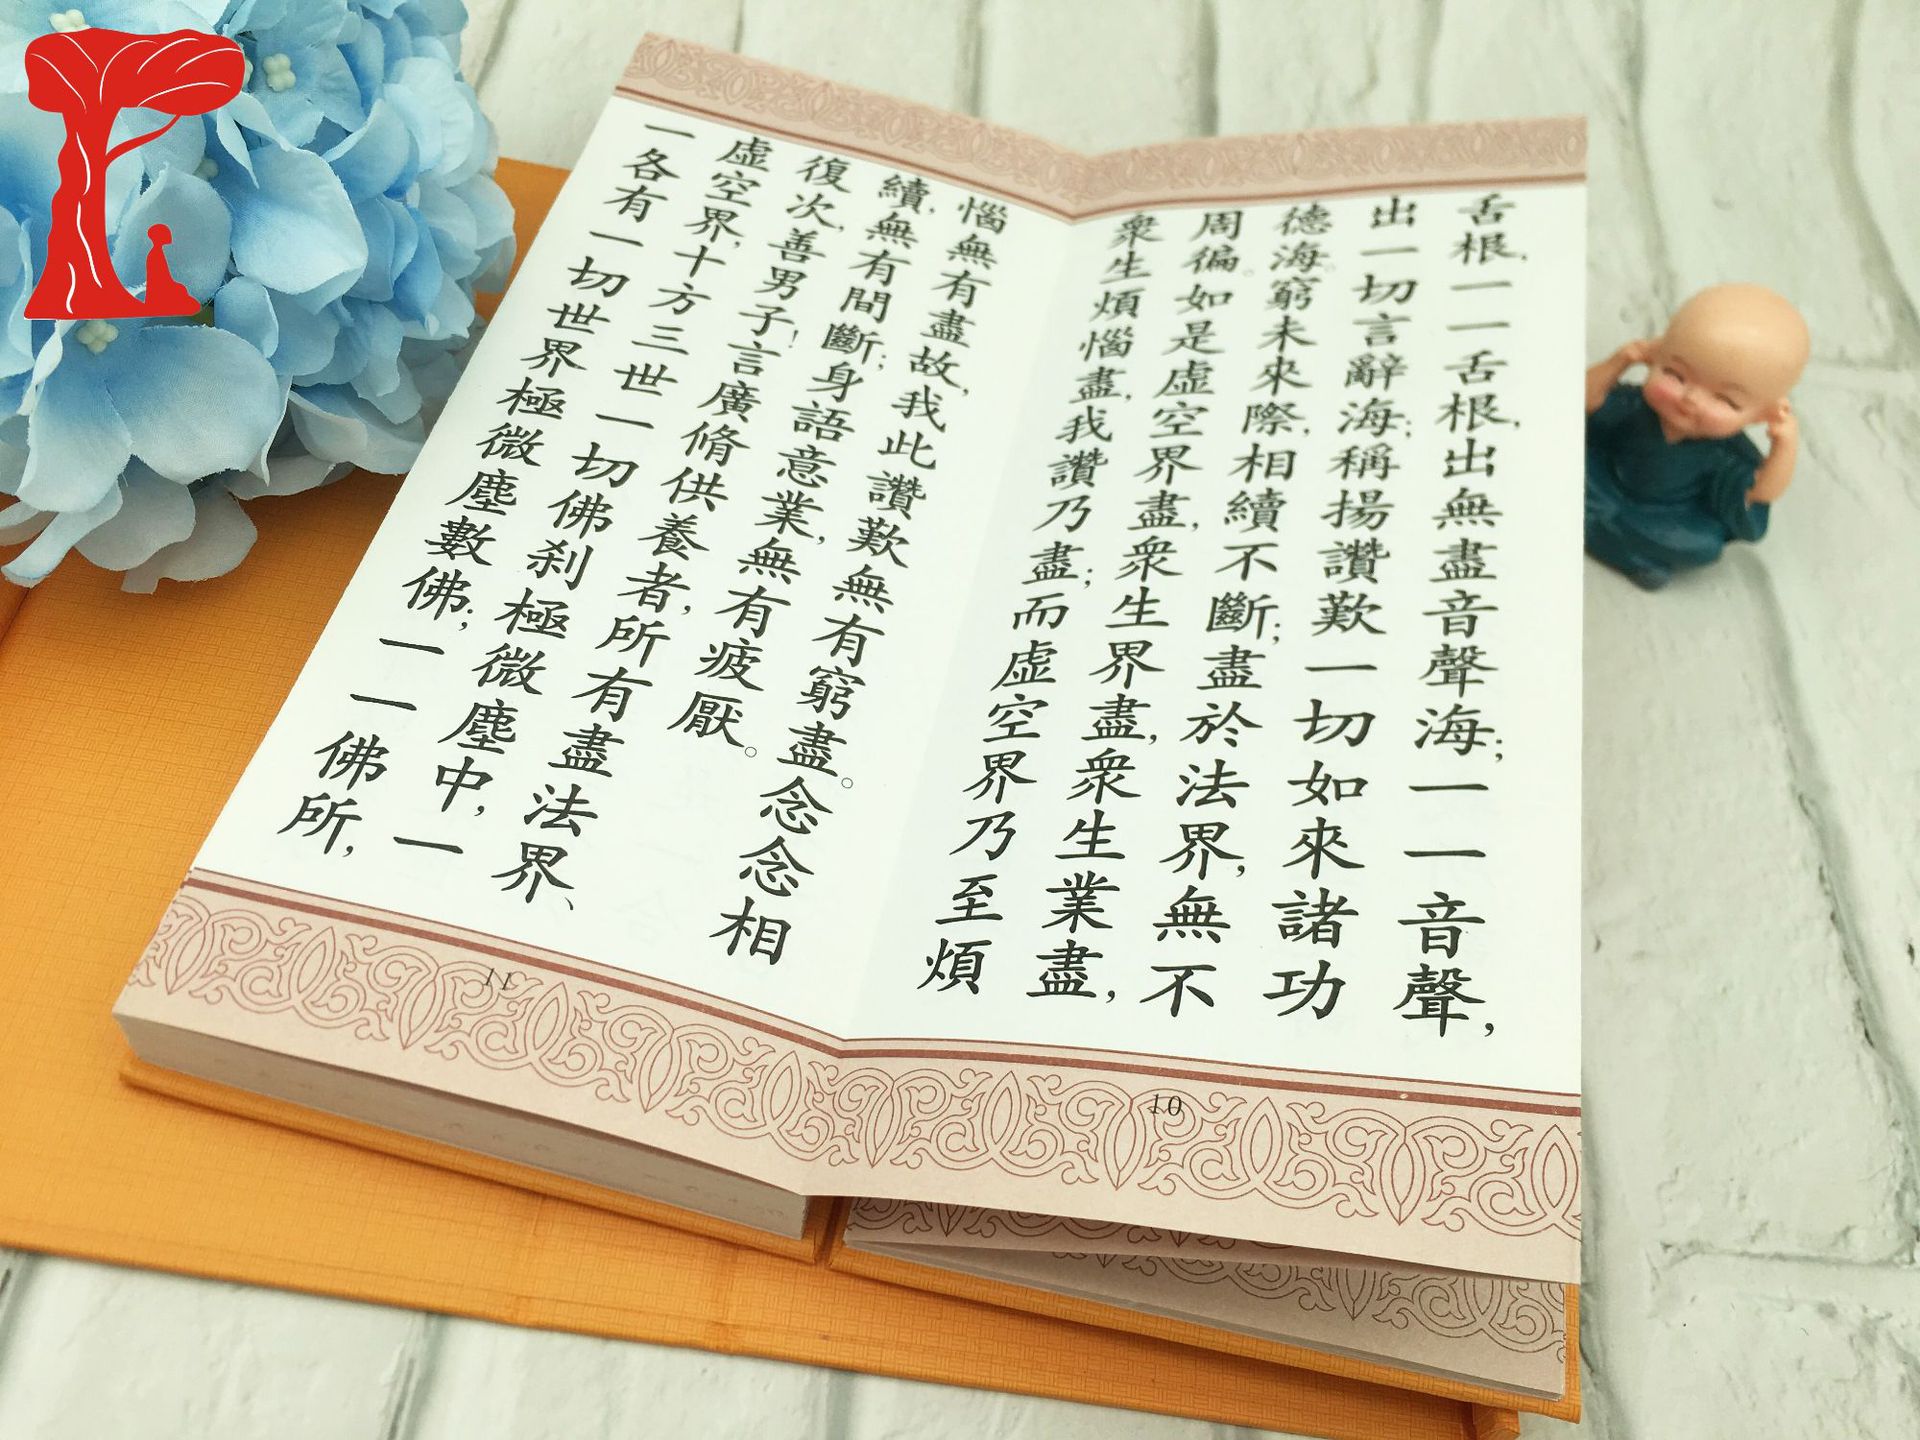 舌根,一一舌根,出無盡音聲海;一一音聲,
出一切言辭海;稱揚讚歎一切如來諸功
德海。窮未來際,相續不斷;盡於法界,無不
周徧。如是虛空界盡,眾生界盡,眾生業盡,
眾生煩惱盡,我讚乃盡;而虛空界乃至煩
10
惱無有盡故,我此讚歎無有窮盡。念念相
續,無有間斷;身語意業,無有疲厭。
復次,善男子!言廣脩供養者,所有盡法界、
虛空界,十方三世一切佛剎極微塵中,一
一各有一切世界極微塵數佛;一一佛所,
11